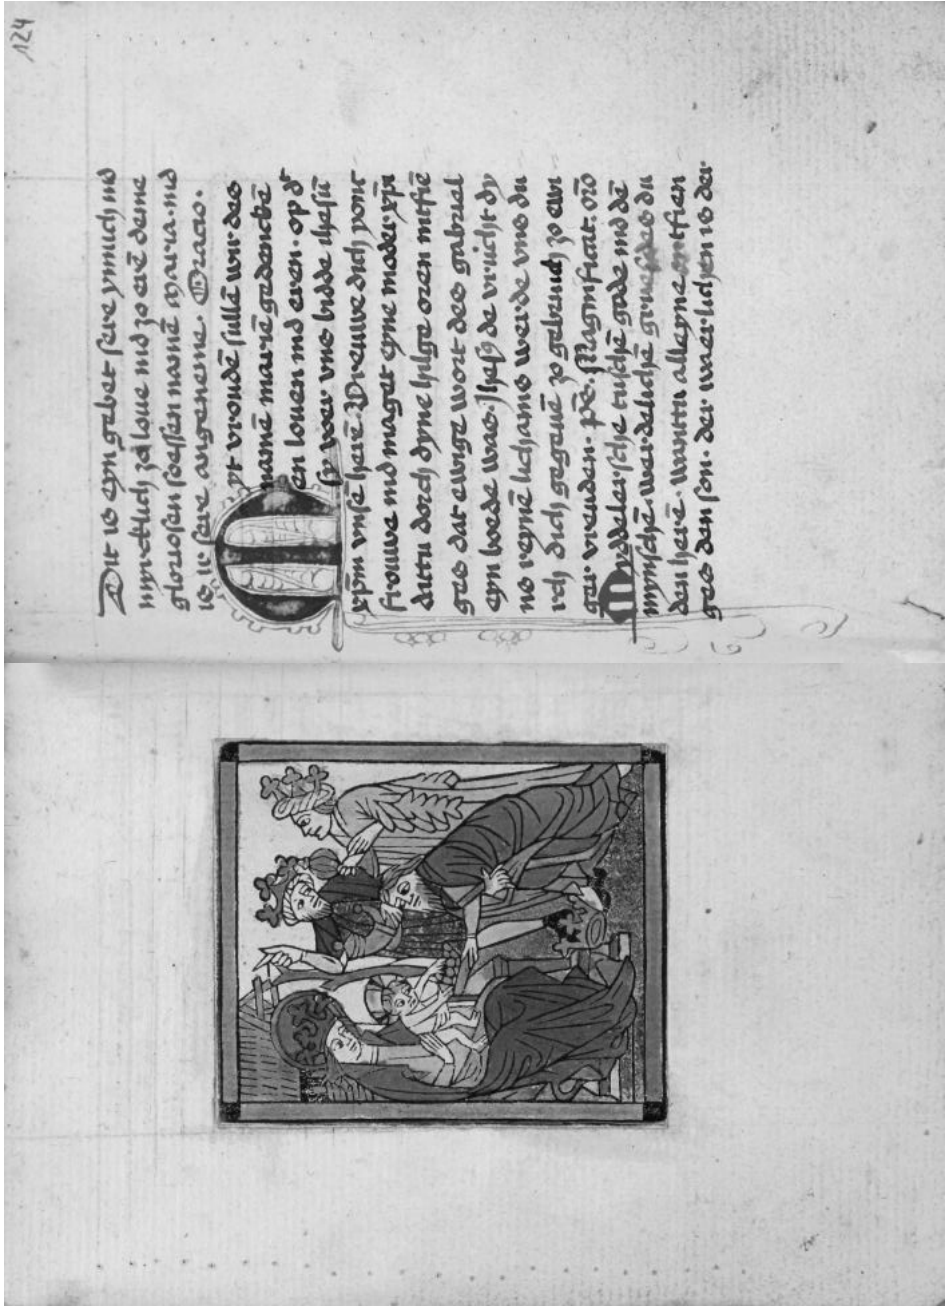 124
Dit is eyn gebet sere ynnich ind
nuretlich zo loue ind zo erē deme
gloriosen soessen namē maria · ind
is ir sere angeneme · Oracio ·
Myt vroudē sullē wir des
namē mariē gedenckē
en louen ind eren · op dz
sy voer vns bidde ihesū
xpm vnsē herē · Vreuwe dich
frouwe ind maget eyne moder xpi
dattu dorch dyne hilge oren
gees dat ewige wort des gabriel
eyn bode was · Ihesꝰ de vrucht dy
ns reynē lichams werde vns du
rch dich gegeuē zo gebruch zo ewi
ger vreuden · Magnificat ·
Middelersche tuschē gode ind dē
mynschē werdelichē du
den herē · wanttu alleyne
gees den son · der waerlichen is der ·